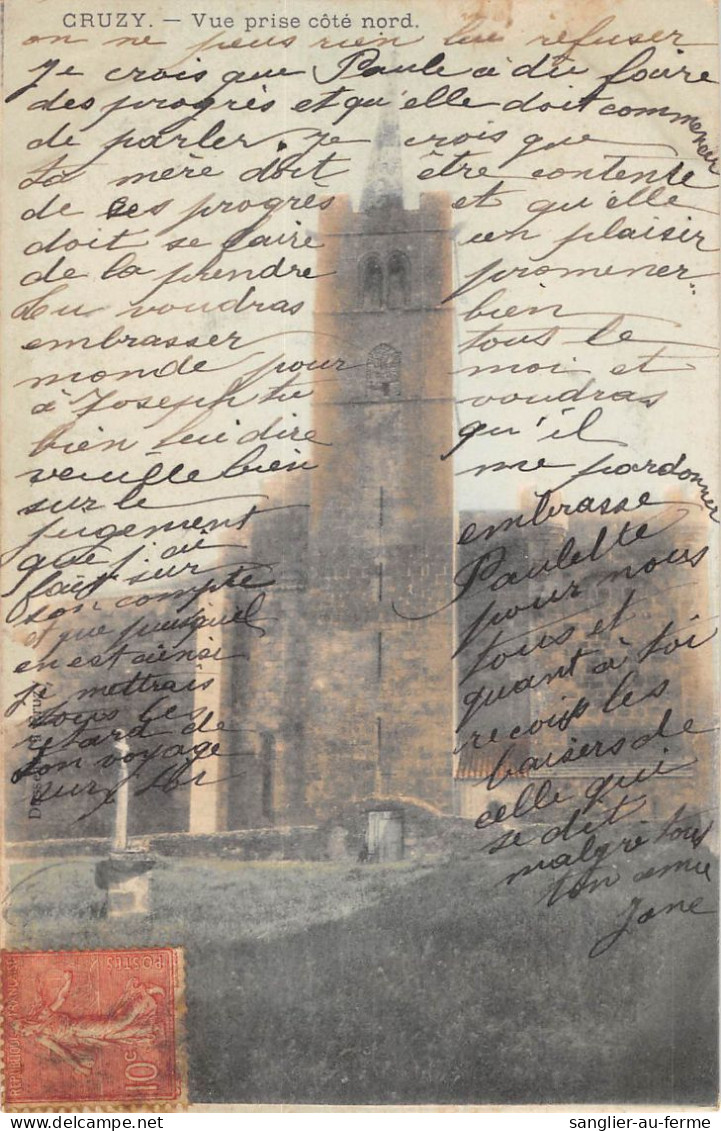 CRUZY. — Vue prise côté nord.
on ne peus rien lui refuser
Je crois que Paule a du faire
des progrès et qu'elle doit commencer
de parler je crois que
La mère doit être contente
de ses progrès et qu'elle
doit se faire un plaisir
de la prendre promener
tu voudras bien
embrasser tous le
monde pour moi et
à Joseph tu voudras
bien lui dire qu'il
veuille bien me pardonner
sur le
jugement
que j'ai
fait sur
son compte
et que puisquel
en est ainsi
je mettrais
tous les
retard de
ton voyage
sur
embrasse
Paulette
pour nous
tous et
quant à toi
recois les
baisers de
celle qui
se dit
malgré tous
ton amie
Jane
REPUBLIQUE FRANÇAISE
POSTES
10c
sanglier-au-ferme